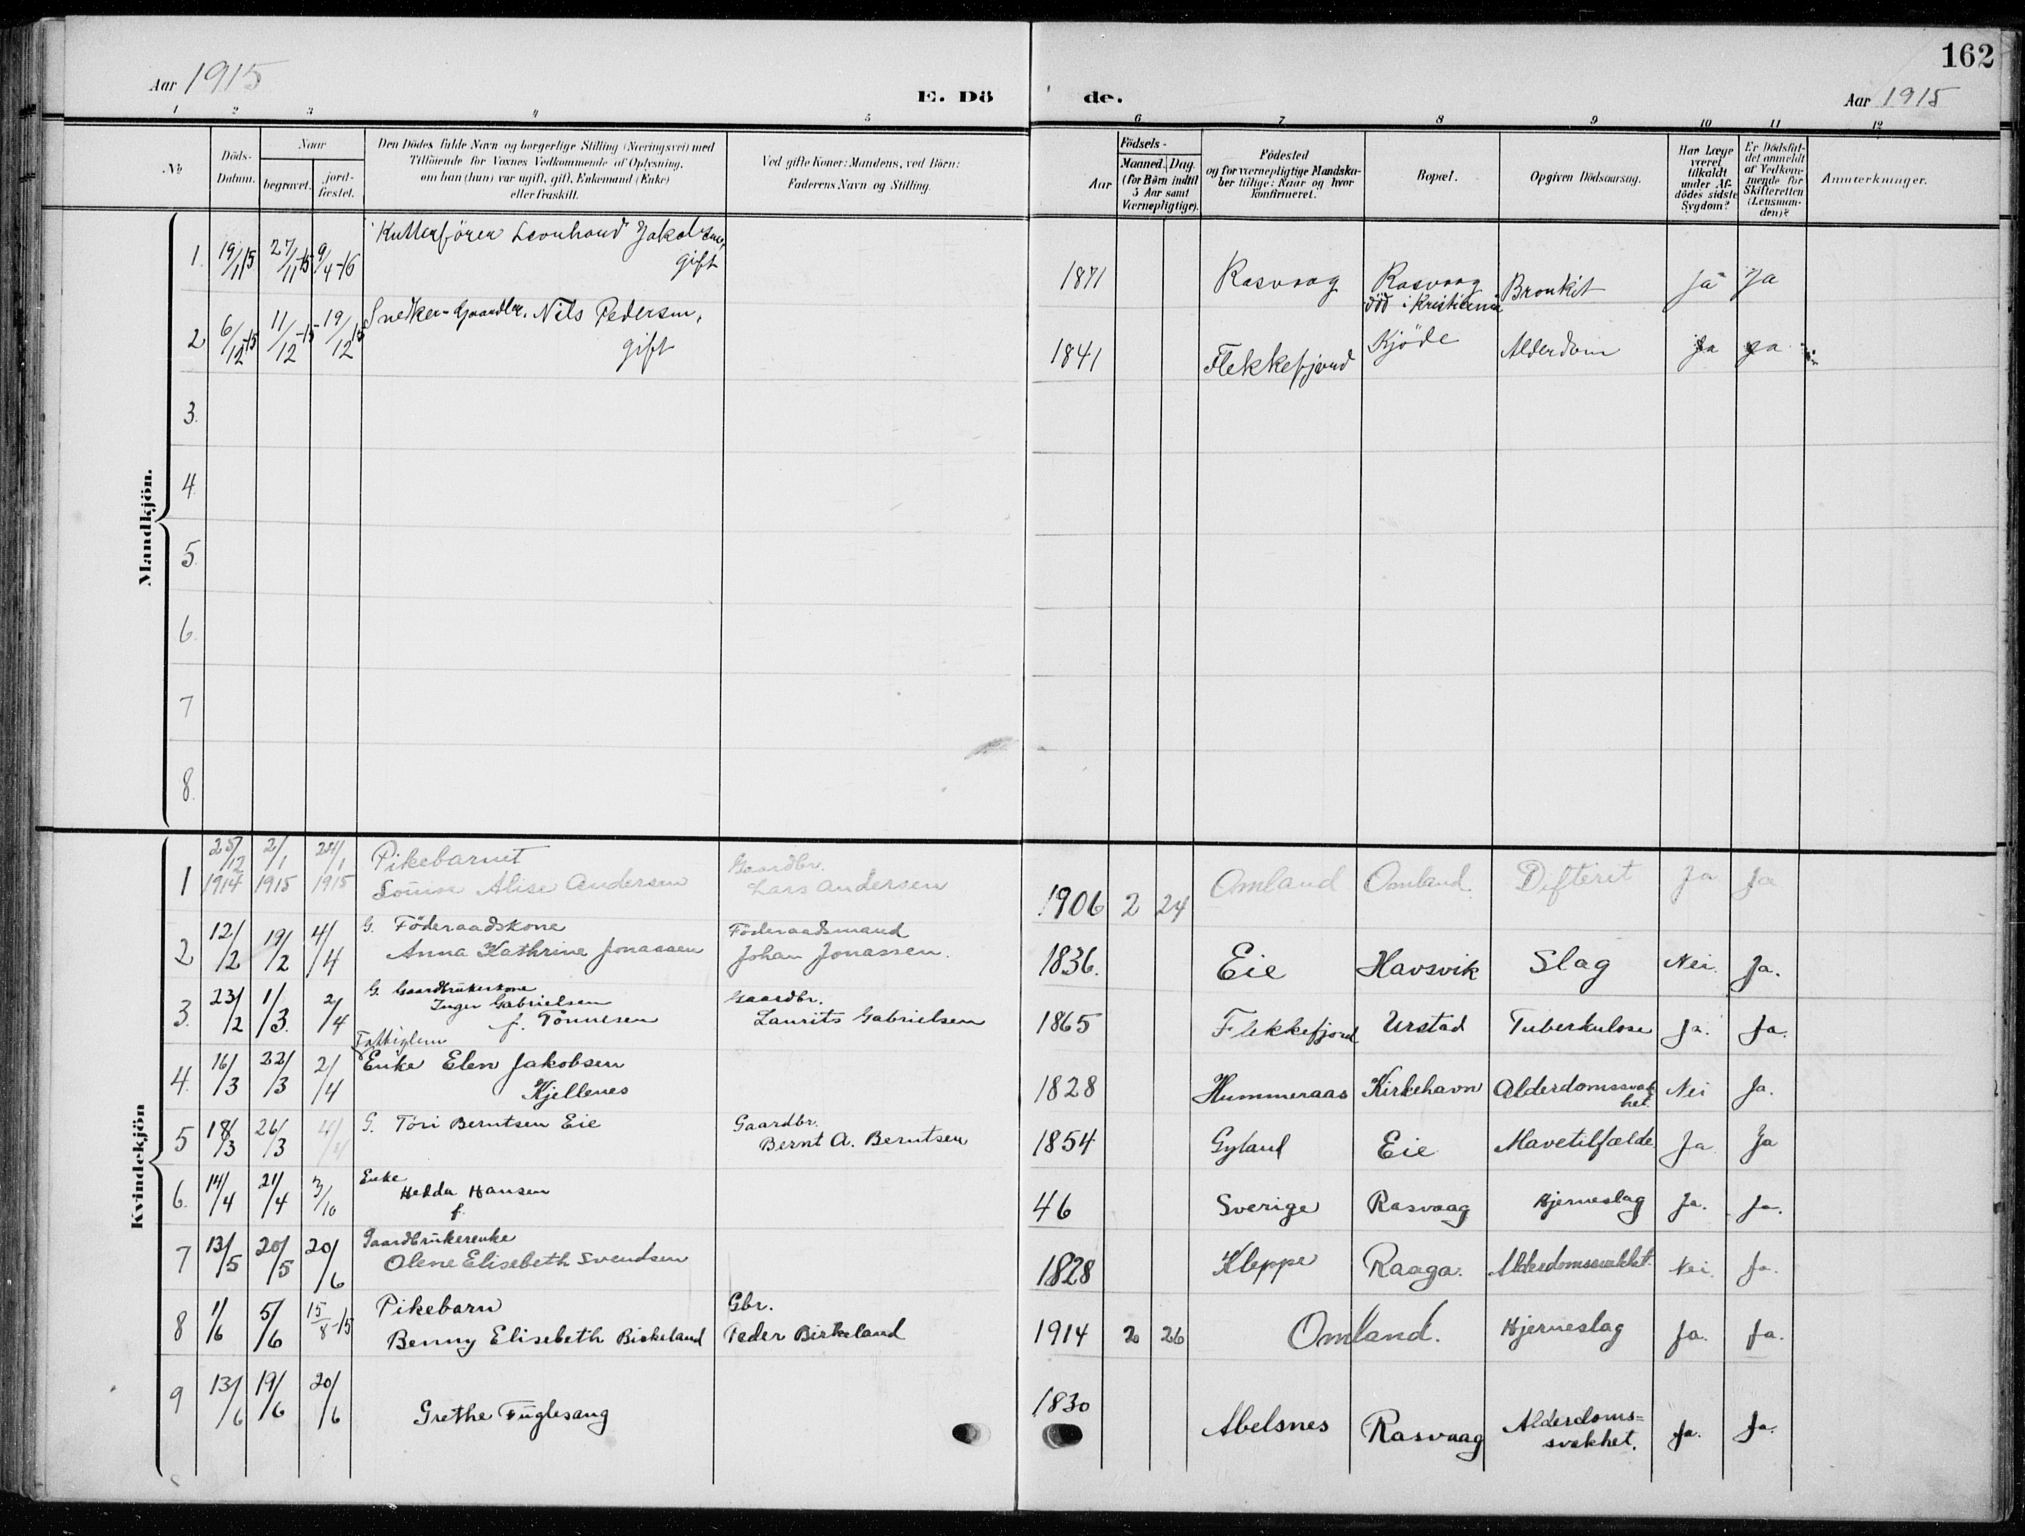 162
Aar 1915
E. Dö
de.
Aar 1915
1 2 3 4 5 6 7 8 9 10 11 12
No
Döds-
Datum.
Naar
begravet.
jord-
fæstet.
Den Dödes fulde Navn og borgerlige Stilling (Næringsvei) med
Tilföiende for Voxnes Vedkommende af Oplysning,
om han (hun) var ugift, gift, Enkemand (Enke)
eller fraskilt.
Ved gifte Koner: Mandens, ved Börn:
Faderens Navn og Stilling.
Födsels-
Aar
Maaned. Dag.
(for Börn indtil
5 Aar samt
Værnepligtige).
Födested
og for værnepligtige Mandska-
ber tillige: Naar og hvor
konfirmeret.
Bopæl.
Opgiven Dödsaarsag.
Har Læge
været
tilkaldt
under Af-
dödes sidste
Sygdom?
Er Dödsfal-
det anmeldt
af Vedkom-
mende for
Skifteretten
(Lensman-
den)?
Anmærkninger.
Mandkjön.
1. 19/11 15 27/11-15 9/4-16 Kutterfører Leonhard Jakobsen, gift 1871 Rasvaag Rasvaag død i Kristiania Bronkit Ja Ja
2 6/12-15 11/12-15 19/12 15 Snedker Nils Pedersen, gift 1841 Flekkefjord Kjöde Alderdom Ja Ja
3.
4.
5.
6.
7
8.
Kvindekjön
1 25/12 1914 2/1 1915 24/1 1915 Pikebarnet
Louise Alise Andersen Gaardbr. Lars Andersen 1906 2 24 Omland Omland. Difterit Ja Ja
2 12/2 19/2 4/4 G. Föderaadskone
Anna Kathrine Jonassen Föderaadsmand Johan Jonassen. 1836. Eie Havsvik Slag Nei. Ja.
3. 23/2 1/3. 2/4 G. Gaardbrukerkone
Inger Gabrielsen
f. Tönnesen Gaardbr. Laurits Gabrielsen 1865 Flekkefjord Urstad Tuberkulose Ja. Ja.
Fattiglem
4. 16/3 22/3 2/4 Enke Elen Jakobsen
Kjellenes 1828 Hummeraas Kirkehavn Alderdomssvak-het. Nei Ja.
5 18/3 26/3 4/4 G. Töri Berntsen Eie Gaardbr. Bernt A. Berntsen 1854 Gyland Eie Mavetilfælde Ja Ja
6. 14/4 21/4 3/10 Enke
Hedda Hansen
f. 46 Sverige Rasvaag Hjerneslag Ja. Ja.
7 13/5 20/5 20/6 Gaardbrukerenke
Olene Elisebeth Svendsen 1828 Kleppe Raaga. Alderdomssvakhet. Nei. Ja.
8 1/6 5/6 15/8-15 Pikebarn
Benny Elisebeth Birkeland Gbr. Peder Birkeland 1914 2 26 Omland. Hjerneslag Ja. Ja.
9 13/6 19/6 20/6 Grethe Fuglesang 1830 Abelsnes Rasvaag Alderdoms=
svakhet. Ja. Ja.